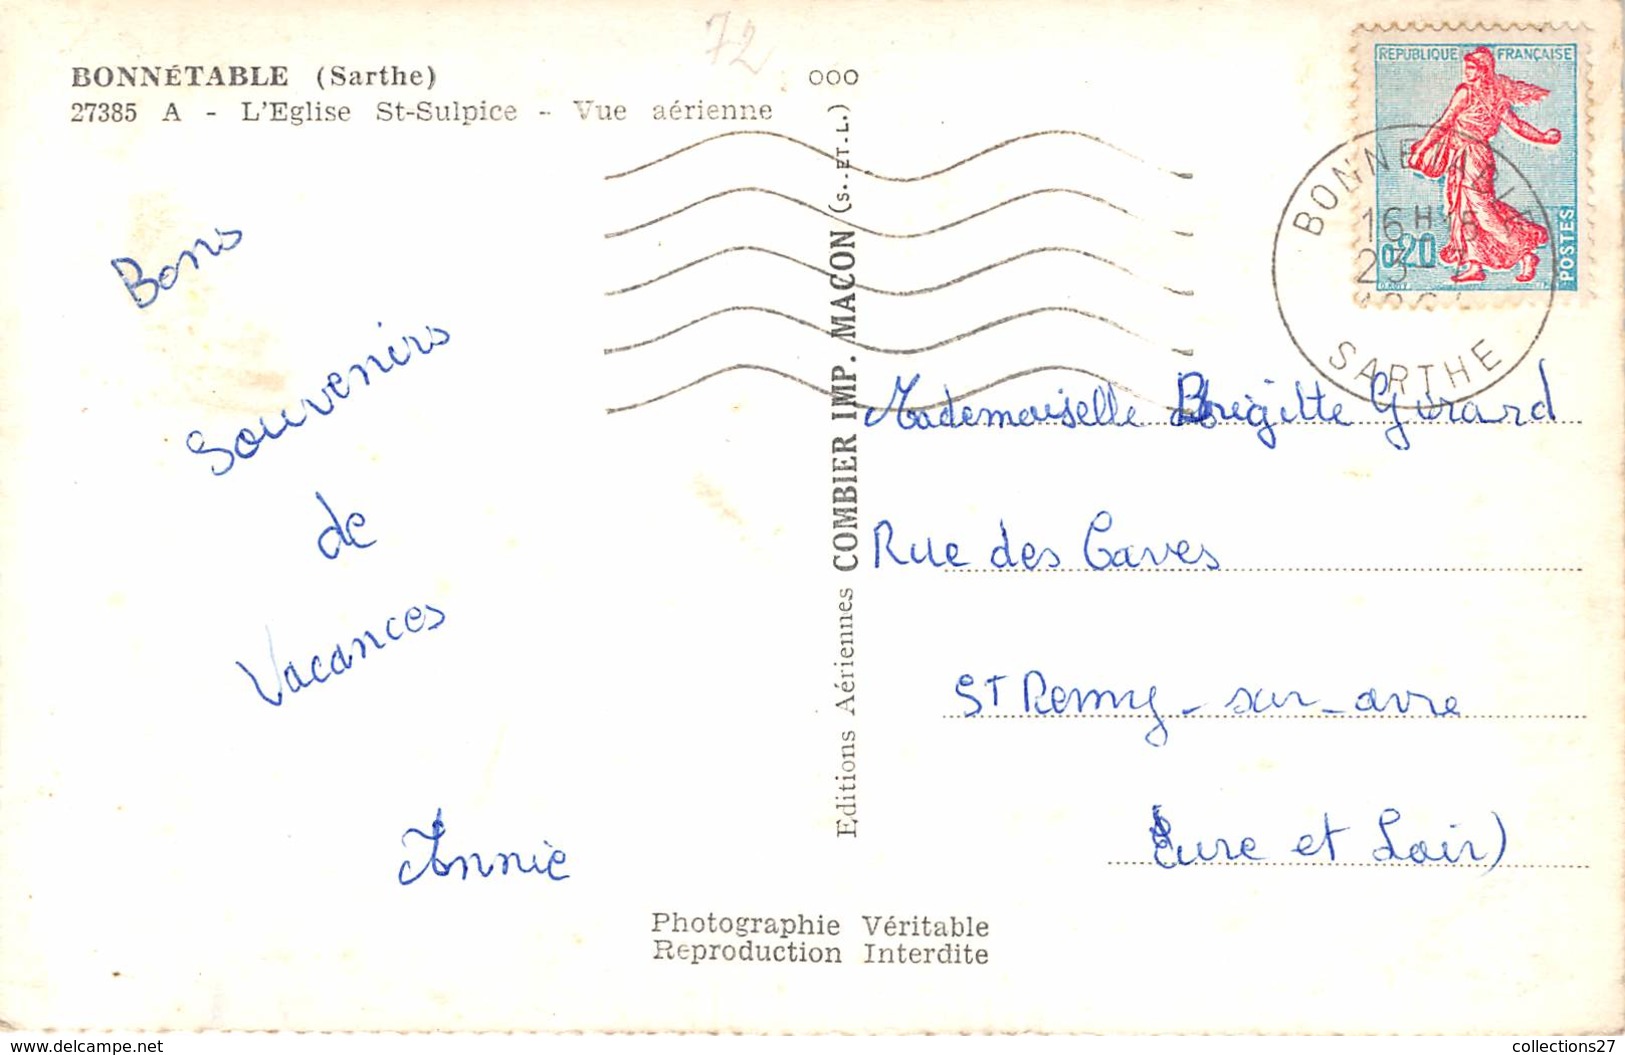 72
BONNÉTABLE (Sarthe)
27385 A - L'Eglise St-Sulpice - Vue aérienne
Bons
Souvenirs
de
Vacances
Annie
ooo
Editions Aériennes COMBIER IMP. MACON (S.-ET-L.)
REPUBLIQUE FRANÇAISE
0,20
POSTES
16 H
23-7
SARTHE
Mademoiselle Brigitte Girard
Rue des Caves
St Remy-sur-avre
Eure et Loir)
Photographie Véritable
Reproduction Interdite
delcampe.net
collections27